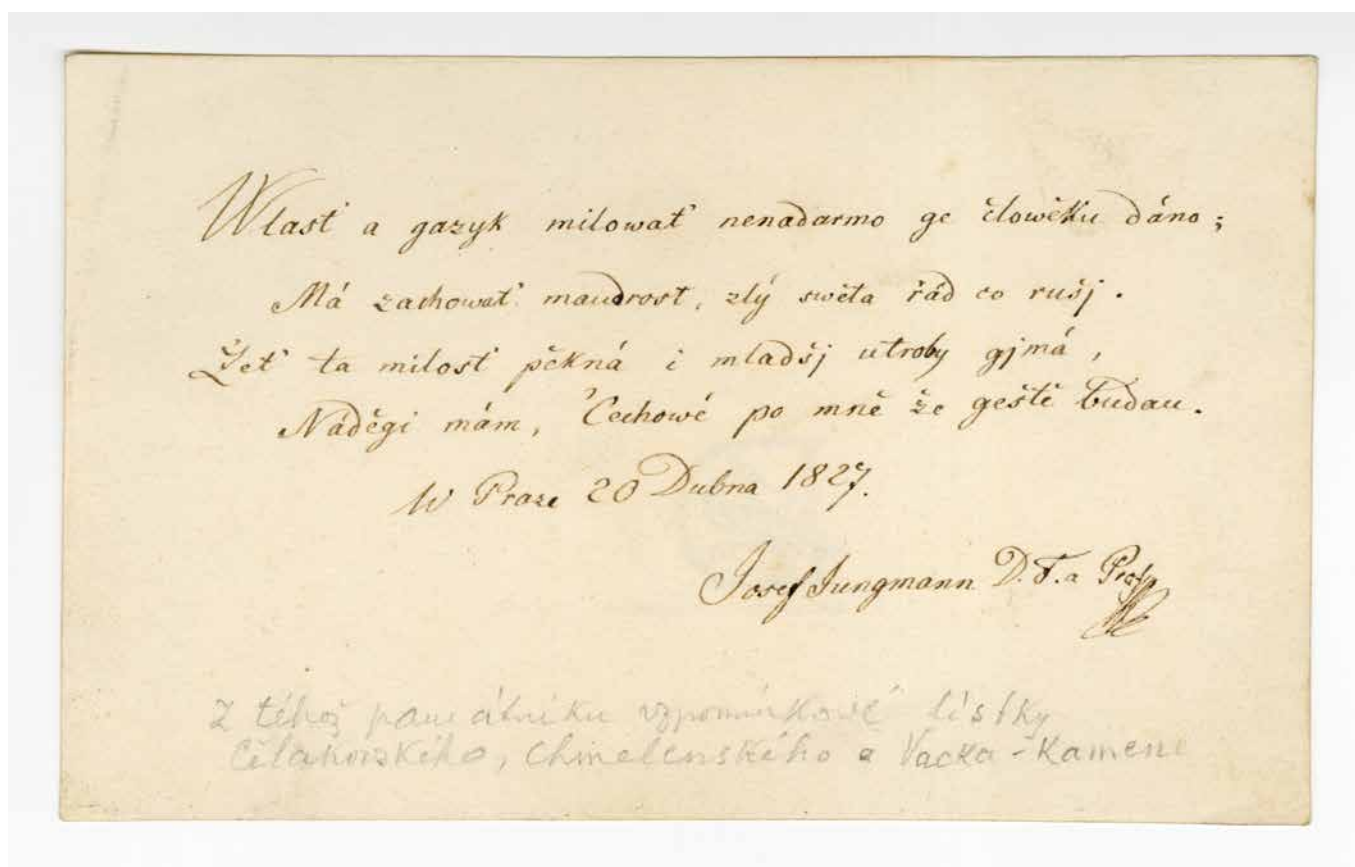 Wlasť a gazyk milowať nenadarmo ge člowěku dáno;
Má zachowať maudrost, zlý swěta řád co rušj.
Žeť ta milosť pěkná i mladšj utroby gjmá,
Náděgi mám, Čechowé po mně že geště budau.
W Praze 20 Dubna 1827.
Josef Jungmann D. F. a Prof.
Z téhož památníku vzpomínkové lístky
Čelakovského, Chmelenského a Vacka-Kamene